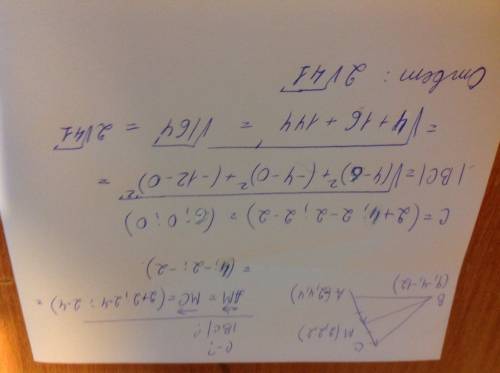 C
M(2,2,2)
A(-2,4,4)
B
(4,-4,-12)
C-?
|BC|-?
AM = MC = (2+2; 2-4; 2-4) =
= (4; -2; -2)
C = (2+4; 2-2; 2-2) = (6; 0; 0)
|BC| = √(4-6)²+(-4-0)²+(-12-0)² =
= √4+16+144 = √164 = 2√41
Ответ: 2√41